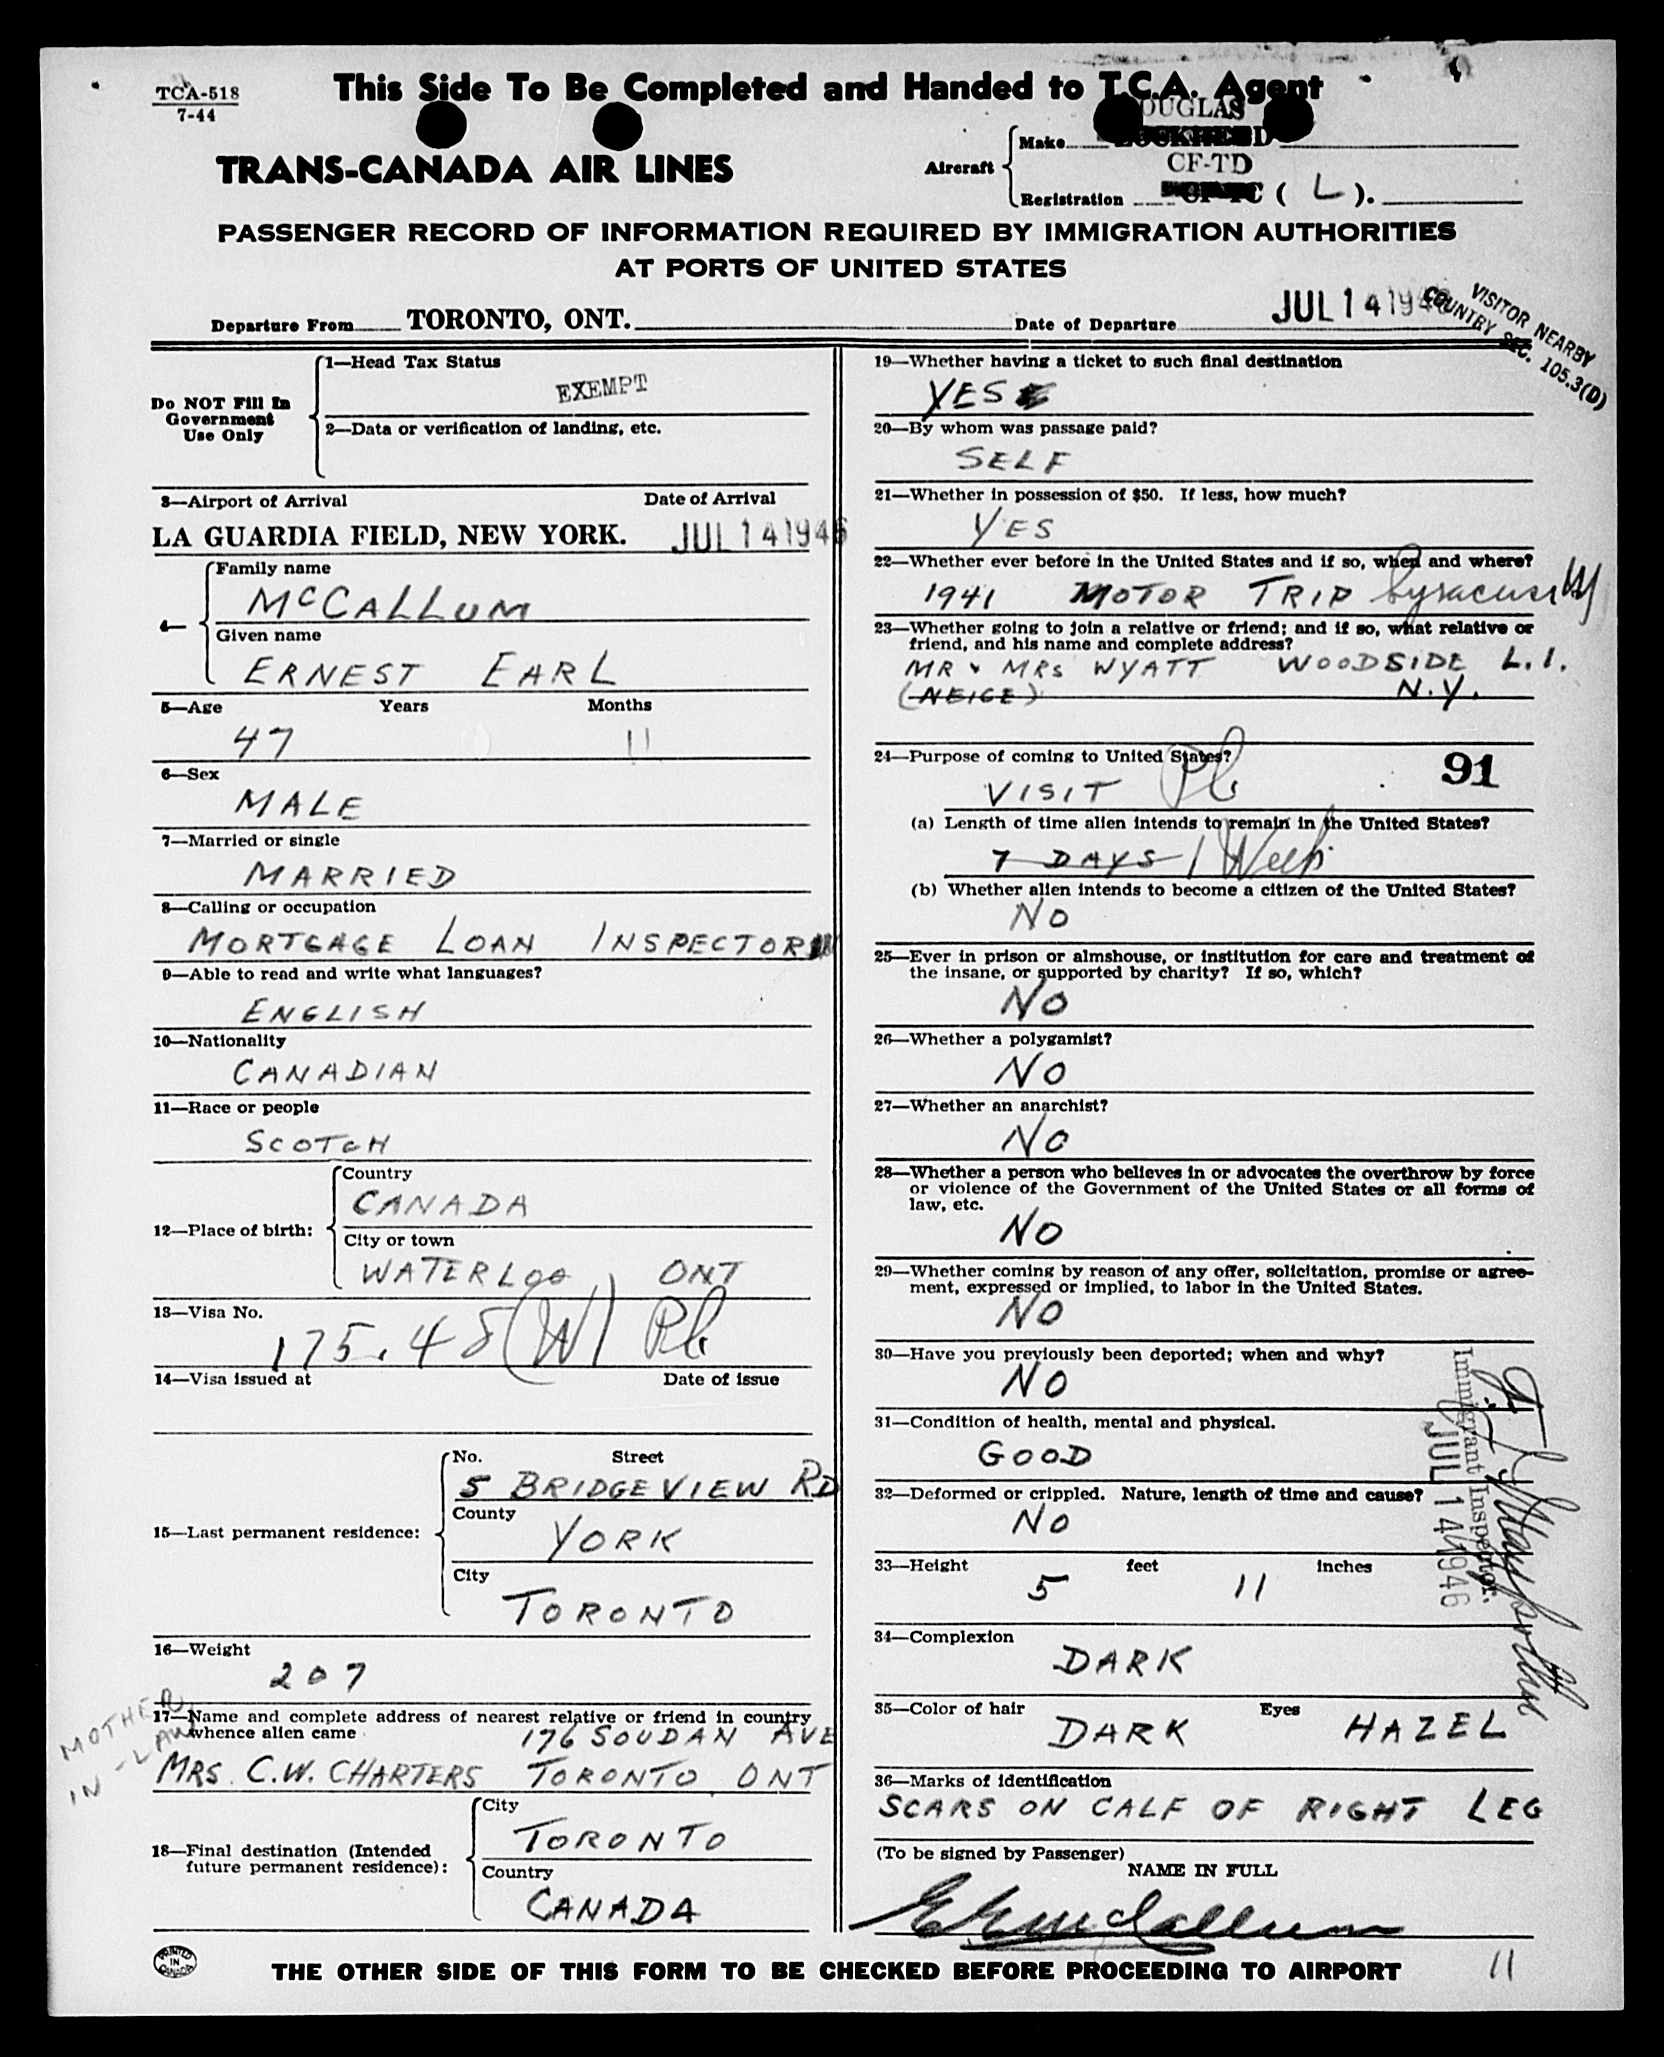 TCA-518
7-44
This Side To Be Completed and Handed to T.C.A. Agent
TRANS-CANADA AIR LINES
Aircraft
Make
DOUGLAS
Registration
CF-TD
( L ).
PASSENGER RECORD OF INFORMATION REQUIRED BY IMMIGRATION AUTHORITIES
AT PORTS OF UNITED STATES
Departure From TORONTO, ONT.
Date of Departure JUL 14 1946
VISITOR NEARBY
COUNTRY SEC. 105.3(D)
Do NOT Fill In
Government
Use Only
1—Head Tax Status
EXEMPT
2—Data or verification of landing, etc.
3—Airport of Arrival Date of Arrival
LA GUARDIA FIELD, NEW YORK. JUL 14 1946
4—
Family name
McCALLUM
Given name
ERNEST EARL
5—Age Years Months
47 11
6—Sex
MALE
7—Married or single
MARRIED
8—Calling or occupation
MORTGAGE LOAN INSPECTOR
9—Able to read and write what languages?
ENGLISH
10—Nationality
CANADIAN
11—Race or people
SCOTCH
12—Place of birth:
Country
CANADA
City or town
WATERLOO, ONT
13—Visa No.
175.48 (W)
14—Visa issued at Date of issue
15—Last permanent residence:
No. Street
5 BRIDGEVIEW RD
County
YORK
City
TORONTO
16—Weight
207
17—Name and complete address of nearest relative or friend in country
whence alien came
176 SOUDAN AVE
MRS. C.W. CHARTERS TORONTO ONT
MOTHER
IN-LAW
18—Final destination (Intended
future permanent residence):
City
TORONTO
Country
CANADA
19—Whether having a ticket to such final destination
YES
20—By whom was passage paid?
SELF
21—Whether in possession of $50. If less, how much?
YES
22—Whether ever before in the United States and if so, when and where?
1941 MOTOR TRIP Syracuse NY
23—Whether going to join a relative or friend; and if so, what relative or
friend, and his name and complete address?
MR & MRS WYATT WOODSIDE L.I.
(NEICE) N.Y.
24—Purpose of coming to United States?
VISIT
91
(a) Length of time alien intends to remain in the United States?
7 DAYS 1 Week
(b) Whether alien intends to become a citizen of the United States?
NO
25—Ever in prison or almshouse, or institution for care and treatment of
the insane, or supported by charity? If so, which?
NO
26—Whether a polygamist?
NO
27—Whether an anarchist?
NO
28—Whether a person who believes in or advocates the overthrow by force
or violence of the Government of the United States or all forms of
law, etc.
NO
29—Whether coming by reason of any offer, solicitation, promise or agree-
ment, expressed or implied, to labor in the United States.
NO
30—Have you previously been deported; when and why?
NO
31—Condition of health, mental and physical.
GOOD
32—Deformed or crippled. Nature, length of time and cause?
NO
33—Height feet inches
5 11
34—Complexion
DARK
35—Color of hair Eyes
DARK HAZEL
36—Marks of identification
SCARS ON CALF OF RIGHT LEG
Immigrant Inspector.
JUL 14 1946
(To be signed by Passenger)
NAME IN FULL
E E McCallum
PRINTED
IN
CANADA
THE OTHER SIDE OF THIS FORM TO BE CHECKED BEFORE PROCEEDING TO AIRPORT
11